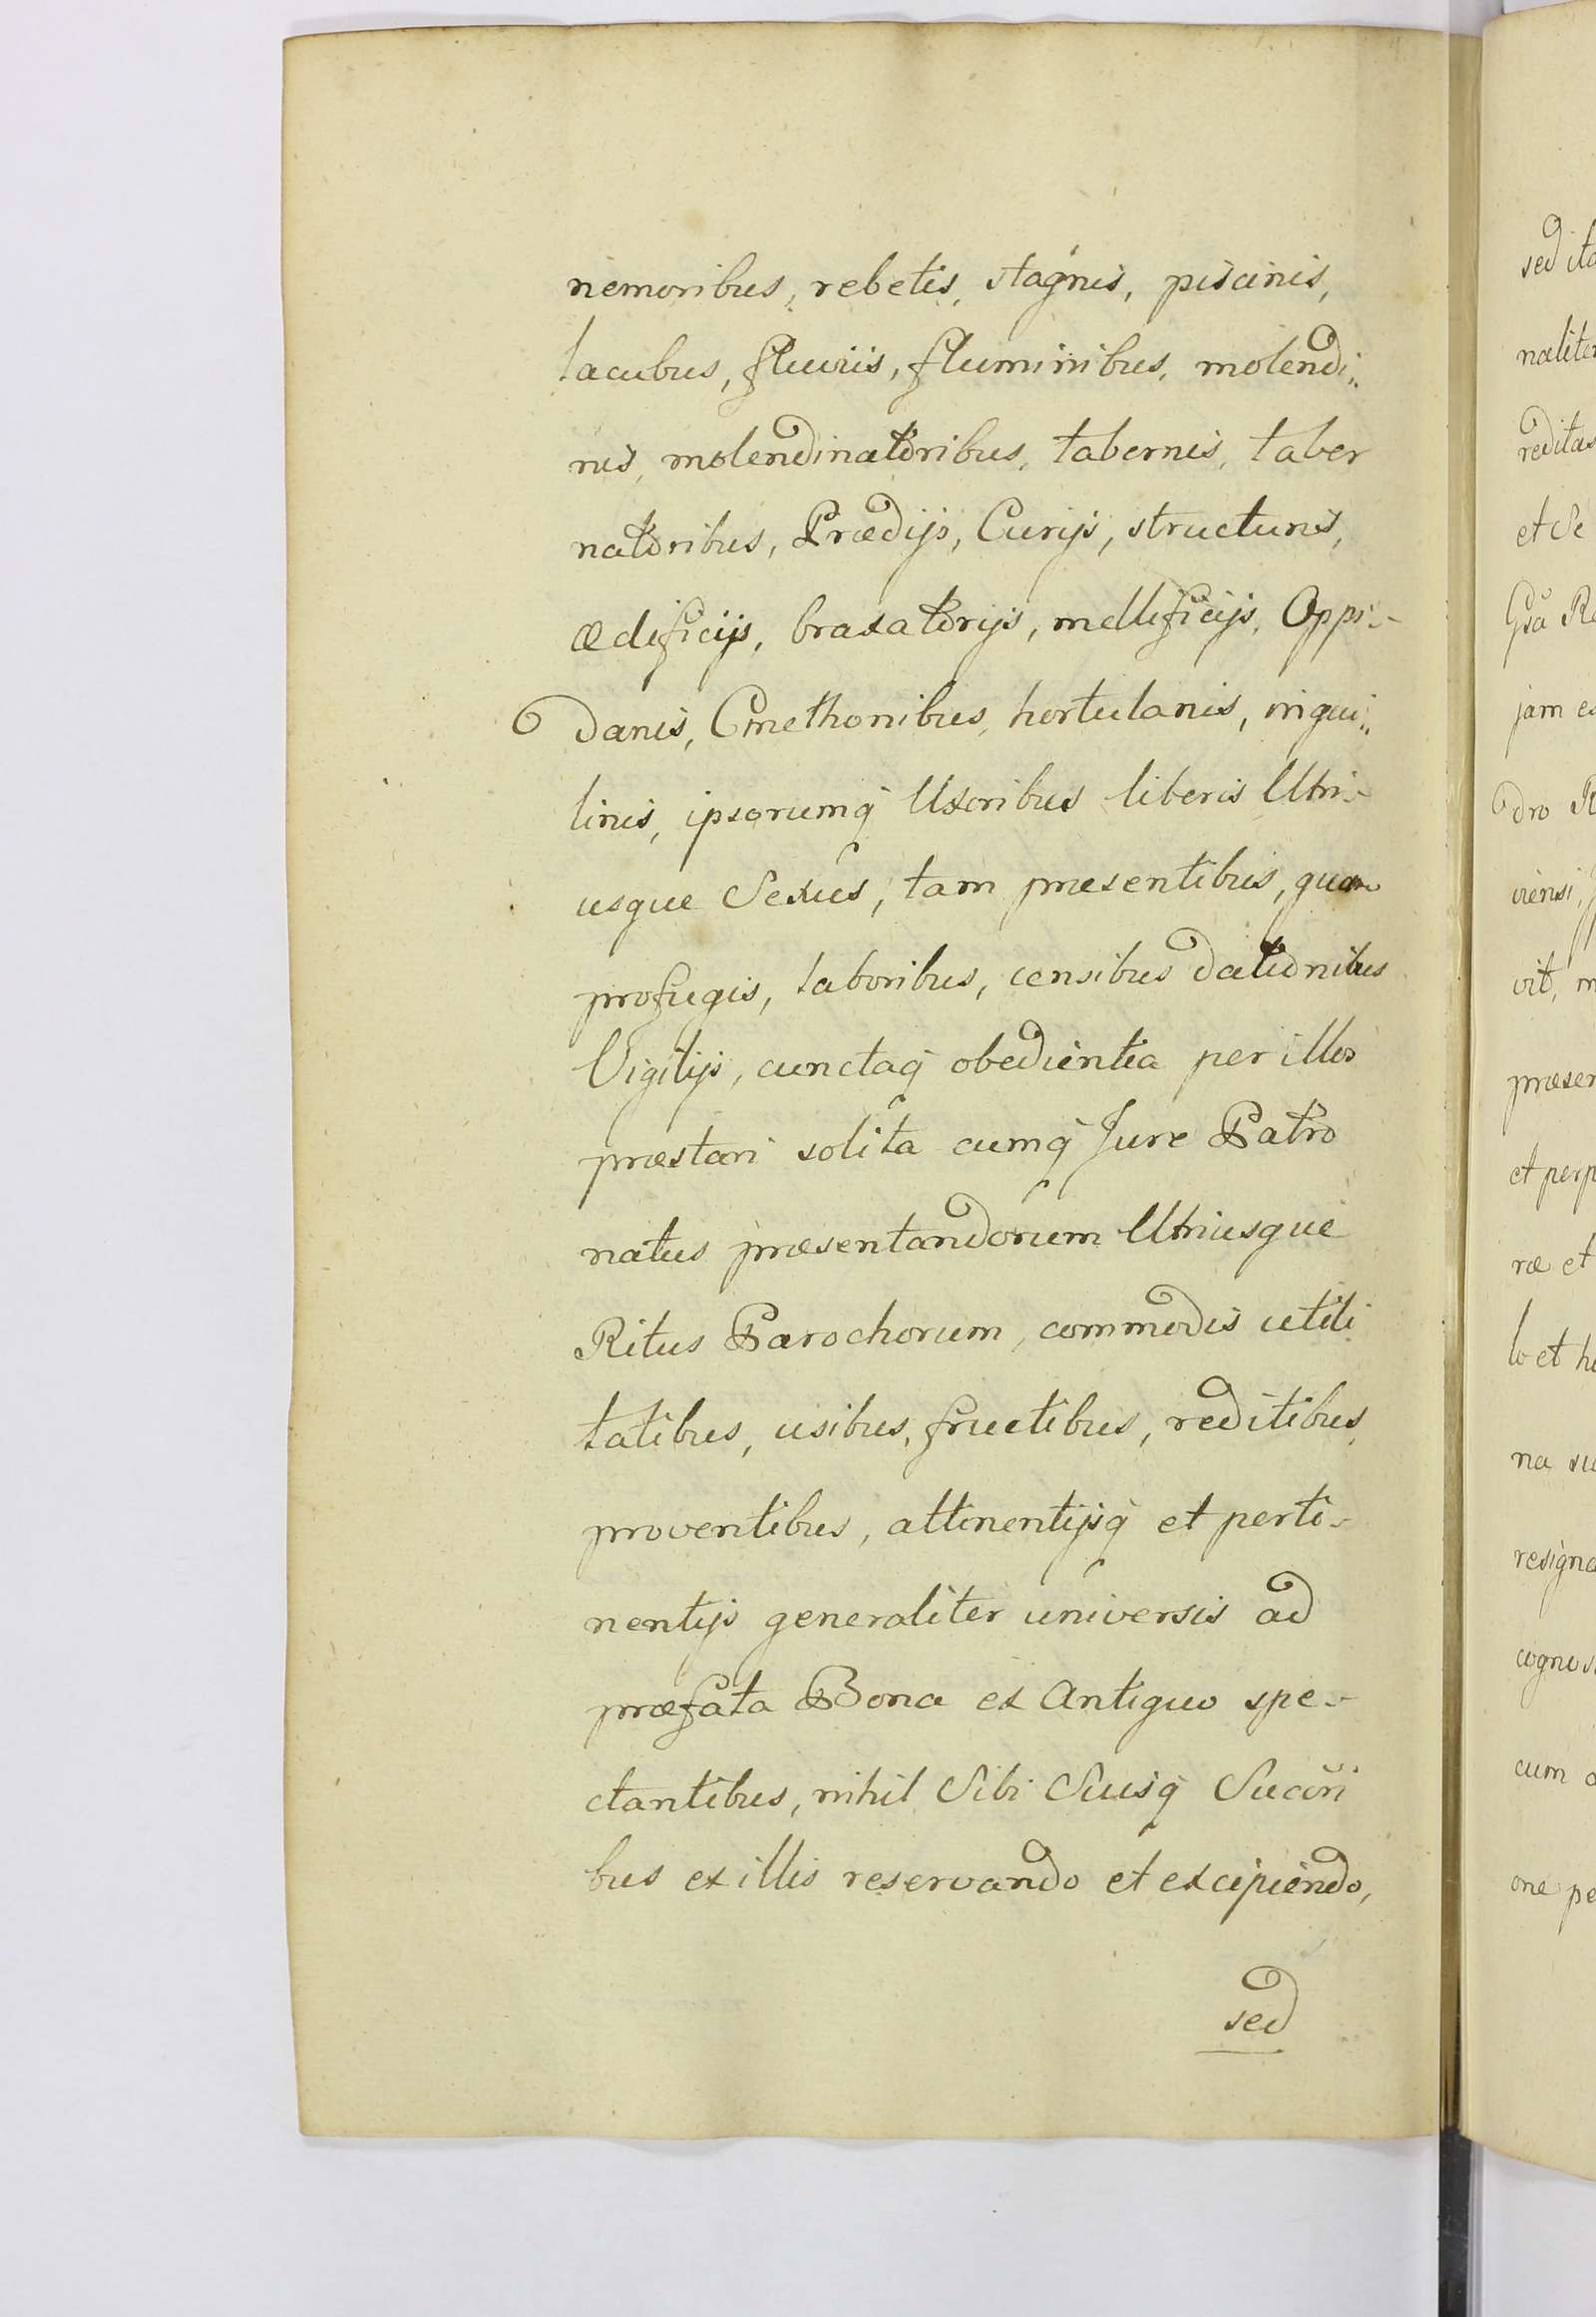 nemoribus, rebetis, stagnis, piscinis,
lacubus, fluviis, fluminibus, molendi„
nis, molendinatoribus, tabernis, taber
natoribus, Prædijs, Curijs, structuris,
ædificijs, braxatorijs, mellificijs, Oppi-
danis, Cmethonibus, hortulanis, inqui„
linis, ipsorumq Uxoribus liberis Utri-
usque Sexus, tam præsentibus, quam
profugis, laboribus, censibus dationibus
Vigilijs, cunctaq obedientia per illos
præstari solita cumq Jure Patro
natus præsentandorum Utriusque
Ritus Parochorum, commodis utili
tatibus, usibus, fructibus, reditibus,
proventibus, attinentijsq et perti-
nentijs generaliter universis ad
præfata Bona ex Antiquo spe-
ctantibus, nihil Sibi Suisq Succri
bus ex illis reservando et excipiendo,
sed
sed ita
naliter
reditas
et Se
Gsa Re
jam es
dro R
viensi,
vit, m
præsen
et perp
ræ et
lo et h
na su
resigna
cognos
cum
one pe